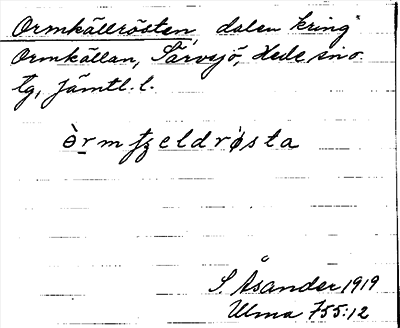 Ormkällrösten, dalen kring
Ormkällan, Särvsjö, Hede sn o.
tg, Jämtl. l.
S. Åsander 1919
Ulma 755:12